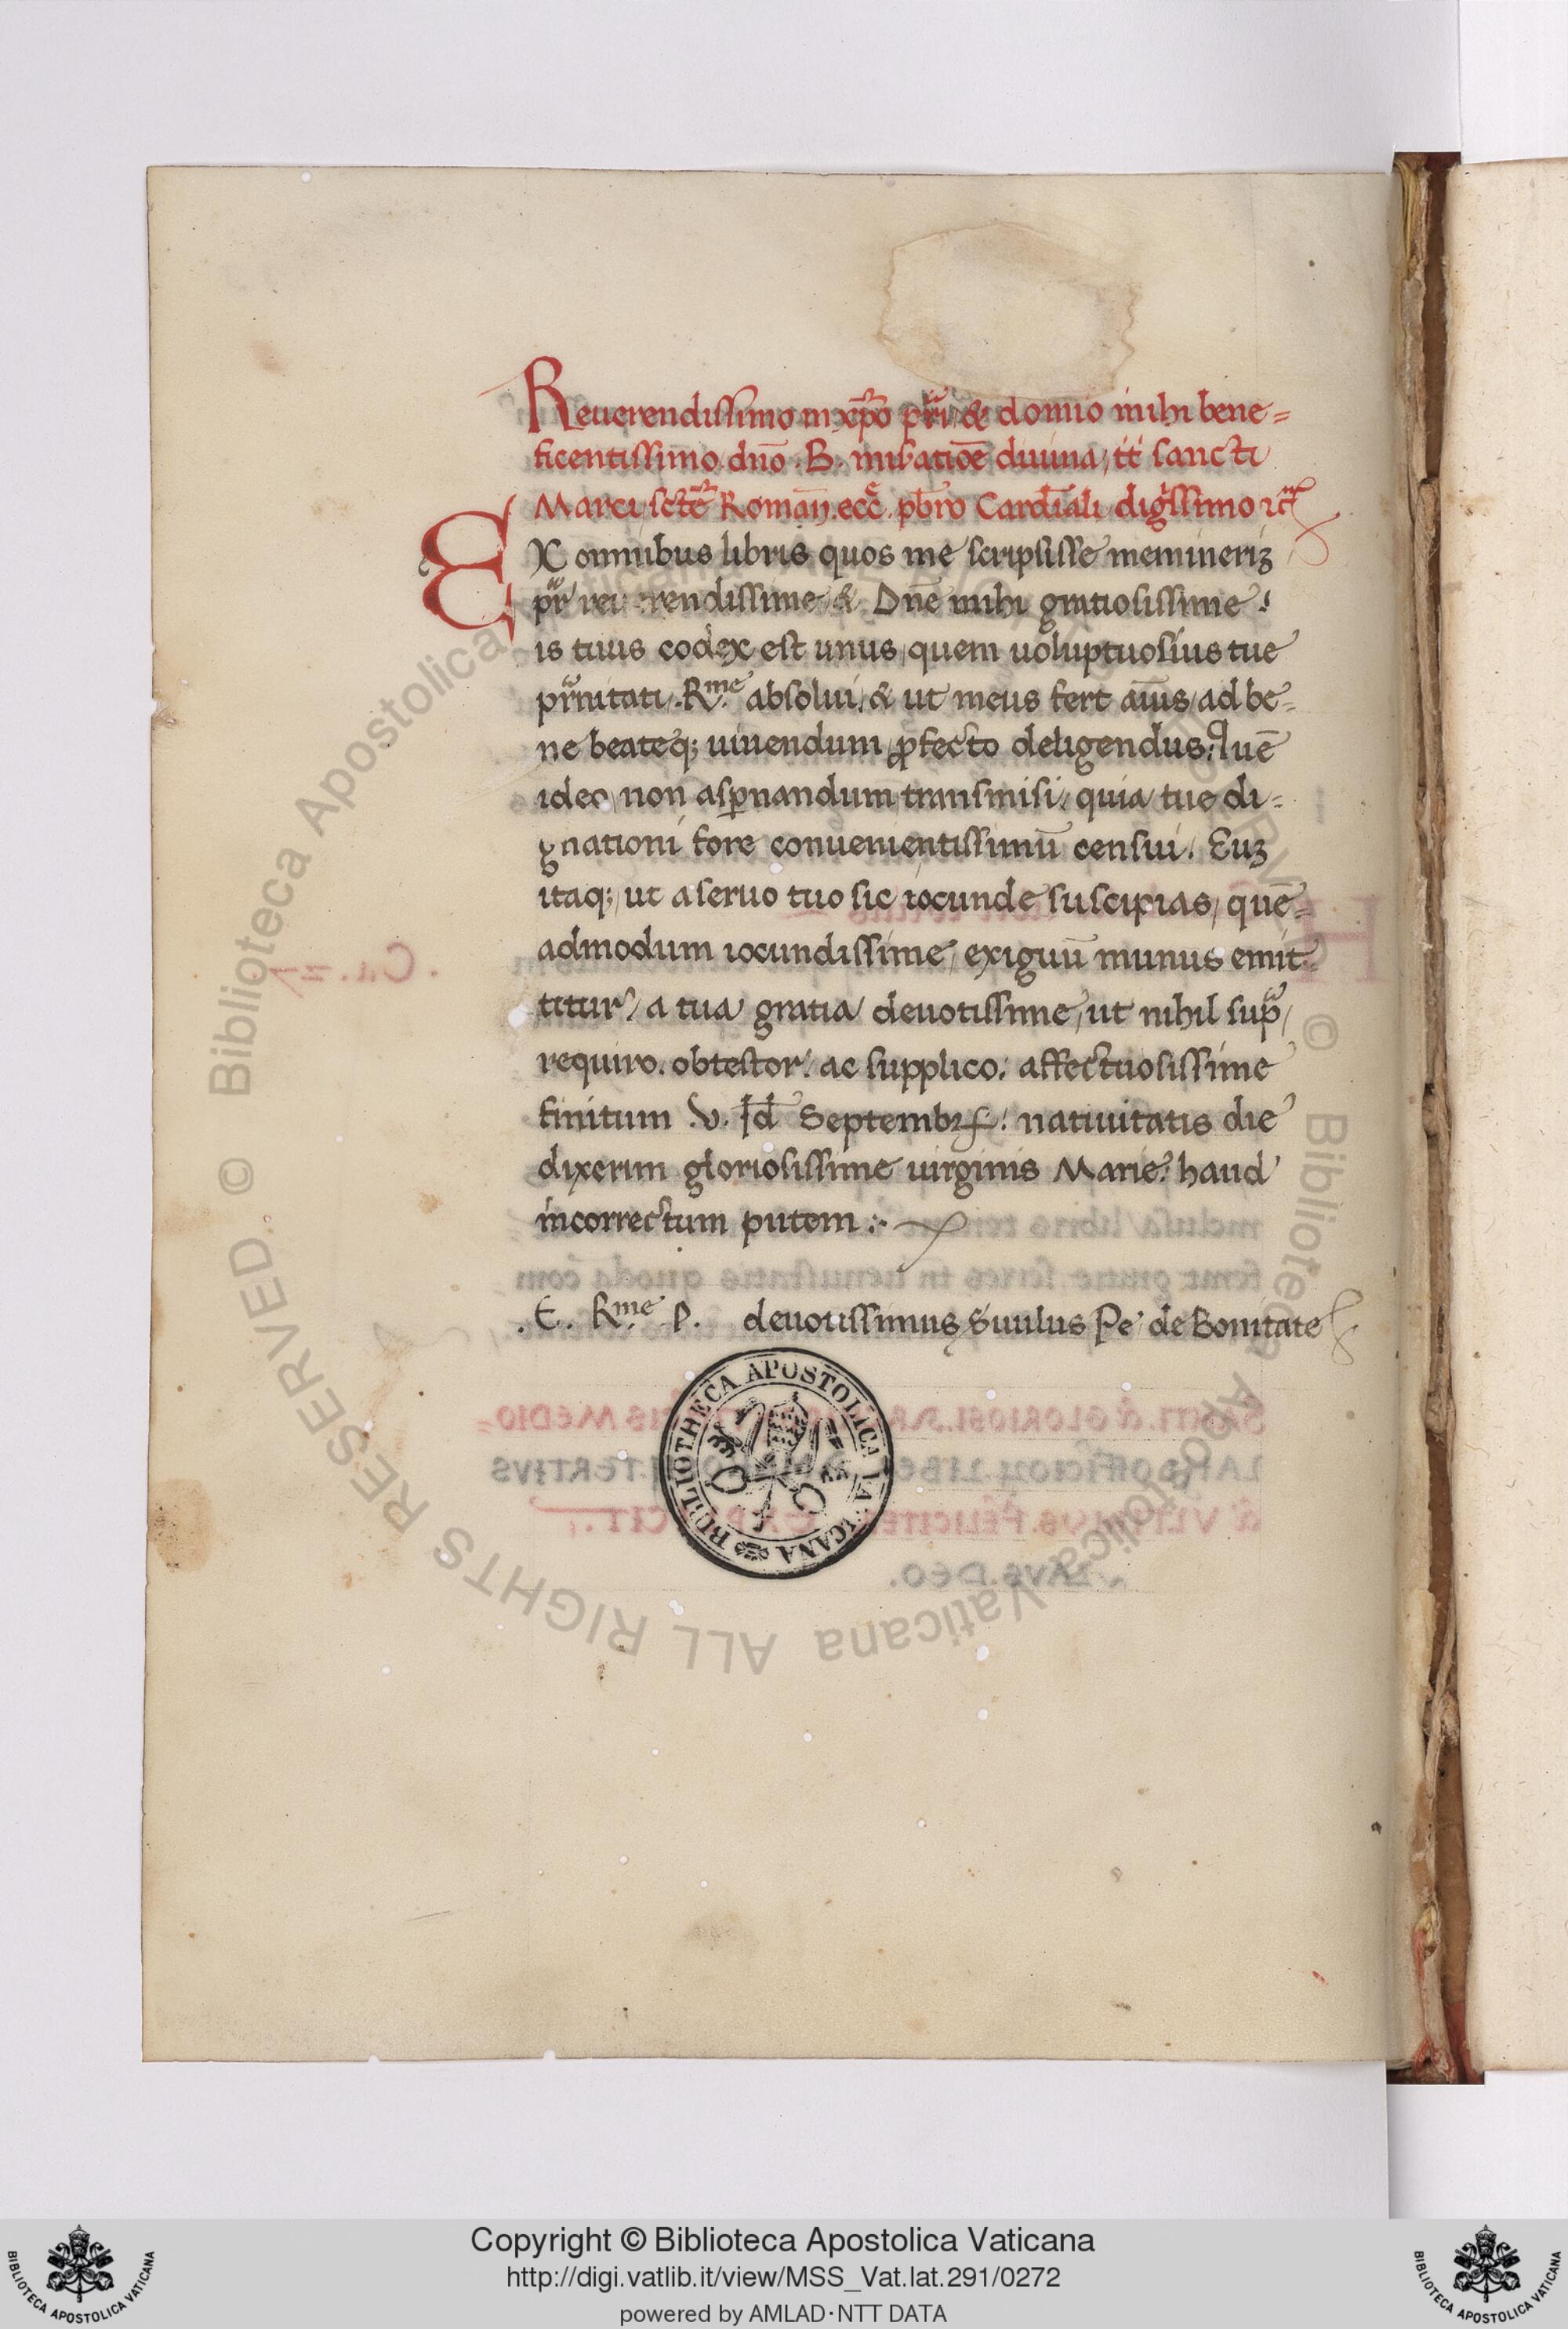 Reuerendissimo in xp̄o pr̄i & domīo mihi bene=
ficentissimo dn̄o .B. miẜatiōe diuina / tt̄ sancti
Marci sctē Romāꝫ. ecc̄. pb̄ro Cardīali dig̅issimo
EX omnibus libris quos me scripsisse meminerīꝫ
pr̄ reuerendissime & Dn̄e mihi gratiosissime:
is tuus codex est unus, quem uoluptuosius tue
pr̄nitati .R.me absolui, & ut meus fert aīus, ad be=
ne beateq; uiuendum ꝓfecto deligendus: Quē
ideo, non asꝑnandum transmisi, quia tue di=
gnationi fore conuenientissimū censui. Euꝫ
itaq; ut a seruo tuo sic iocunde suscipias, quē=
admodum iocundissime, exiguū munus emit=
titur, a tua gratia deuotissime, ut nihil sup̄,
requiro. obtestor: ac supplico: affectuosissime
finitum .V. Id̄ Septembꝝ: natiuitatis die
dixerim gloriosissime uirginis Marie: haud
incorrectum putem :·
.E. R.me P. deuotissimus Suulus Pe' de Bonitate
BIBLIOTHECA APOSTOLICA VATICANA
© Biblioteca Apostolica Vaticana ALL RIGHTS RESERVED.
Copyright © Biblioteca Apostolica Vaticana
http://digi.vatlib.it/view/MSS_Vat.lat.291/0272
powered by AMLAD·NTT DATA
BIBLIOTECA APOSTOLICA VATICANA
BIBLIOTECA APOSTOLICA VATICANA